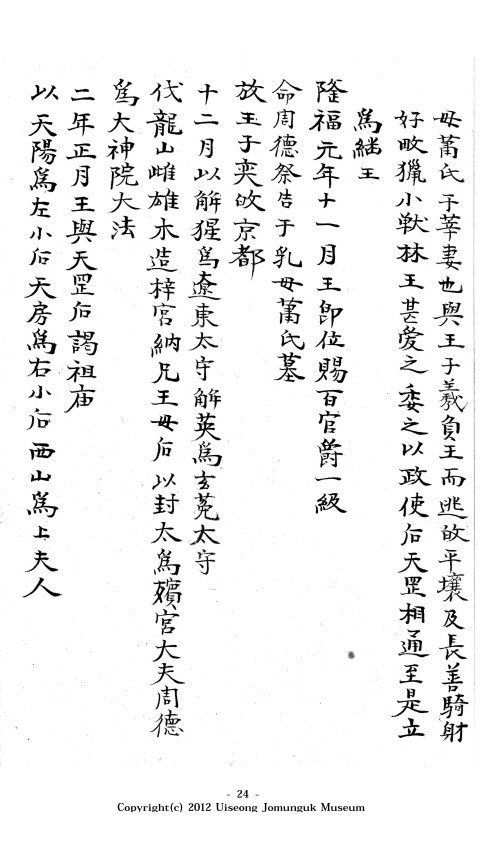 母萬氏子莘妻也與王子義負王而逃故平壤及長善騎射
好畋獵小獸林王甚愛之委之以政使后天罡相通至是立
爲継王
隆福元年十一月王卽位賜百官爵一級
命周德祭告于乳母萬氏墓
放王子奕故京都
十二月以解猩爲遼東太守解英爲玄菟太守
代龍山雌雄木造梓宮納兄王母后以封太爲殯宮大夫周德
爲大神院大法
二年正月王與天罡后謁祖庙
以天陽爲左小后天房爲右小后西山爲上夫人
- 24 -
Copyright(c) 2012 Uiseong Jomunguk Museum